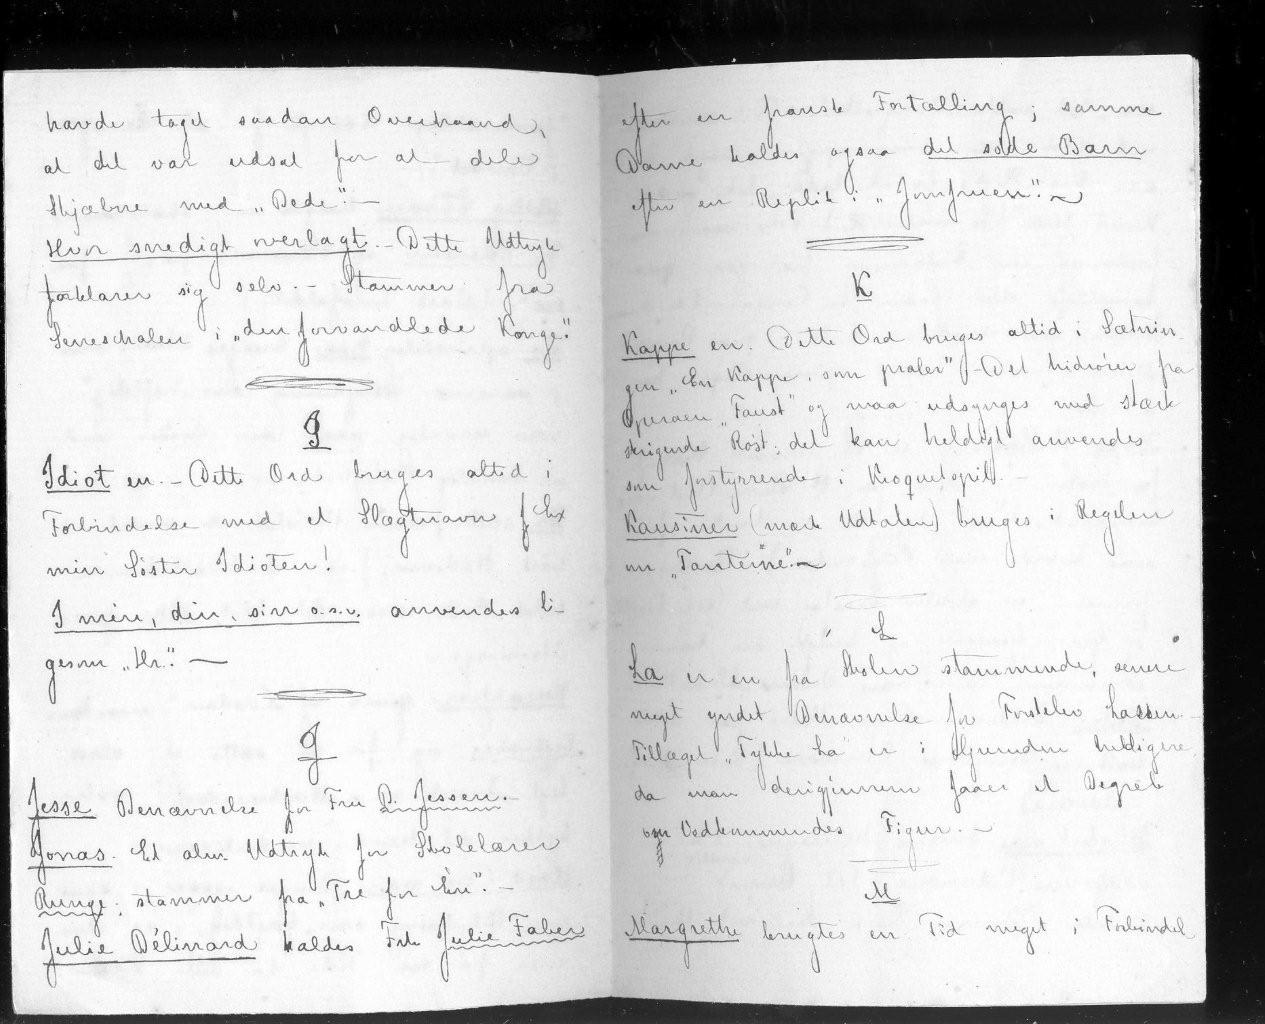 havde taget saadan Overhaand,
at det var udsat for at dele
Skjæbne med „Dede". —
Hvor snedigt overlagt. — Dette Udtryk
forklarer sig selv. — Stammer fra
Seneschalen i „den forvandlede Konge."
I
Idiot en. — Dette Ord bruges altid i
Forbindelse med et Slægtnavn f Ex
min Søster Idioten!
I mine, din, sin o.s.v. anvendes li-
gesom „Hr." —
J
Jesse Benævnelse for Fru P. Jessen. —
Jonas. Et alm. Udtryk for Skolelærer
Runge; stammer fra „Tre for Én". —
Julie Délinard kaldes Frk Julie Faber
efter en fransk Fortælling; samme
Dame kaldes ogsaa det søde Barn
efter en Replik i „Jomfruen". ~
K
Kappe en. Dette Ord bruges altid i Sætnin-
gen „En Kappe, som praler" — Det hidrører fra
Operaen „Faust" og maa udsynges med stærk
skrigende Røst; det kan heldigst anvendes
som forstyrrende i Kroquetspil. —
Kausiner (mærk Udtalen) bruges i Regelen
om „Tanterne". ~
L
La er en fra Skolen stammende, senere
meget yndet Benævnelse for Forstelev Lassen. —
Tillæget „Tykke La" er i Grunden heldigere,
da man derigjennem faaer et Begreb
om Vedkommendes Figur. —
M
Margrethe brugtes en Tid meget i Forbindel